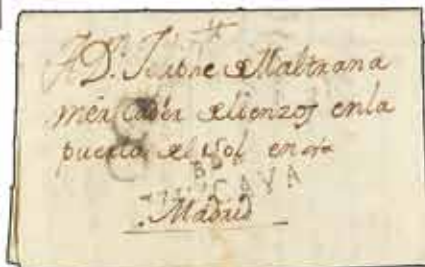 A Dn. Isidre de Maltrana
mercader de lienzos en la
puerta del sol en
VIZCAYA
Madrid